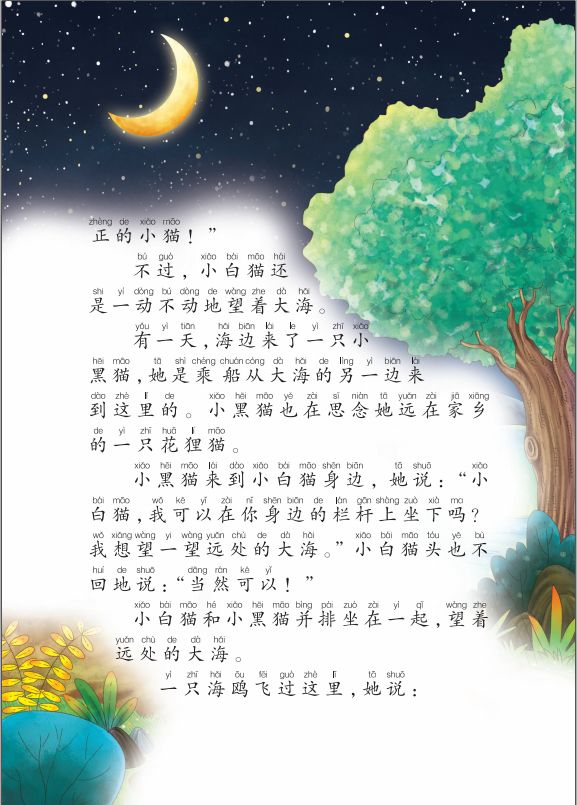 zhèng de xiǎo māo
正的小猫！”
bú guò xiǎo bái māo hái
不过，小白猫还
shì yí dòng bú dòng de wàng zhe dà hǎi
是一动不动地望着大海。
yǒu yì tiān hǎi biān lái le yì zhī xiǎo
有一天，海边来了一只小
hēi māo tā shì chéng chuán cóng dà hǎi de lìng yì biān lái
黑猫，她是乘船从大海的另一边来
dào zhè lǐ de xiǎo hēi māo yě zài sī niàn tā yuǎn zài jiā xiāng
到这里的。小黑猫也在思念她远在家乡
de yì zhī huā lí māo
的一只花狸猫。
xiǎo hēi māo lái dào xiǎo bái māo shēn biān tā shuō xiǎo
小黑猫来到小白猫身边，她说：“小
bái māo wǒ kě yǐ zài nǐ shēn biān de lán gān shàng zuò xià ma
白猫，我可以在你身边的栏杆上坐下吗？
wǒ xiǎng wàng yi wàng yuǎn chù de dà hǎi xiǎo bái māo tóu yě bù
我想望一望远处的大海。”小白猫头也不
huí de shuō dāng rán kě yǐ
回地说：“当然可以！”
xiǎo bái māo hé xiǎo hēi māo bìng pái zuò zài yì qǐ wàng zhe
小白猫和小黑猫并排坐在一起，望着
yuǎn chù de dà hǎi
远处的大海。
yì zhī hǎi ōu fēi guò zhè lǐ tā shuō
一只海鸥飞过这里，她说：